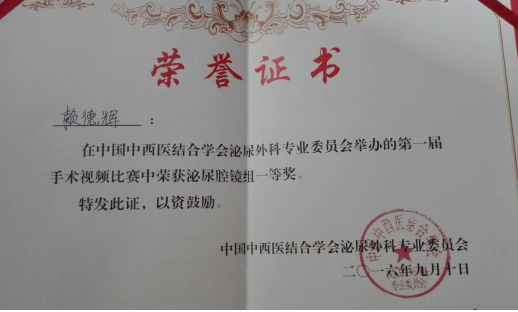 荣誉证书
赖德辉：
在中国中西医结合学会泌尿外科专业委员会举办的第一届
手术视频比赛中荣获泌尿腔镜组一等奖。
特发此证，以资鼓励。
中国中西医结合学会泌尿外科专业委员会
二〇一六年九月十日
中国中西医结合学会
专业委员会